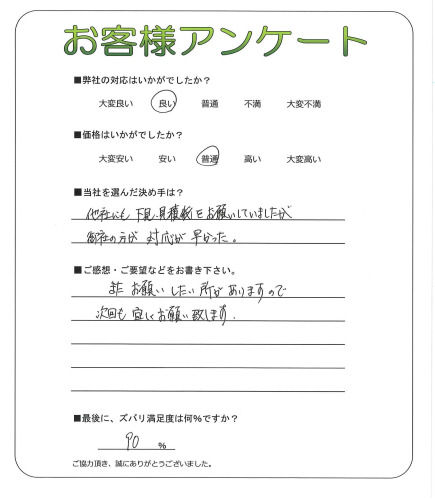 お客様アンケート
■弊社の対応はいかがでしたか？
大変良い 良い 普通 不満 大変不満
■価格はいかがでしたか？
大変安い 安い 普通 高い 大変高い
■当社を選んだ決め手は？
他社にも下見、見積をお願いしていましたが
御社の方が対応が早かった。
■ご感想・ご要望などをお書き下さい。
またお願いしたい所がありますので
次回も宜しくお願い致します.
■最後に、ズバリ満足度は何%ですか？
90 %
ご協力頂き、誠にありがとうございました。